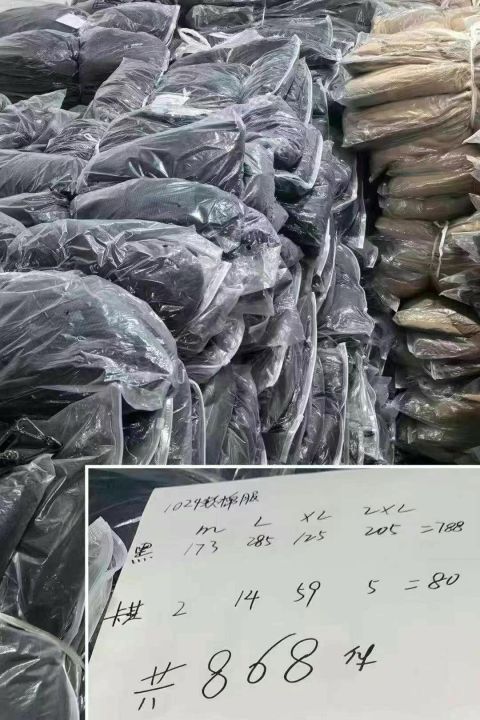 1024款棉服
m L XL 2XL
黑 173 285 125 205 =788
卡其 2 14 59 5 =80
共868件